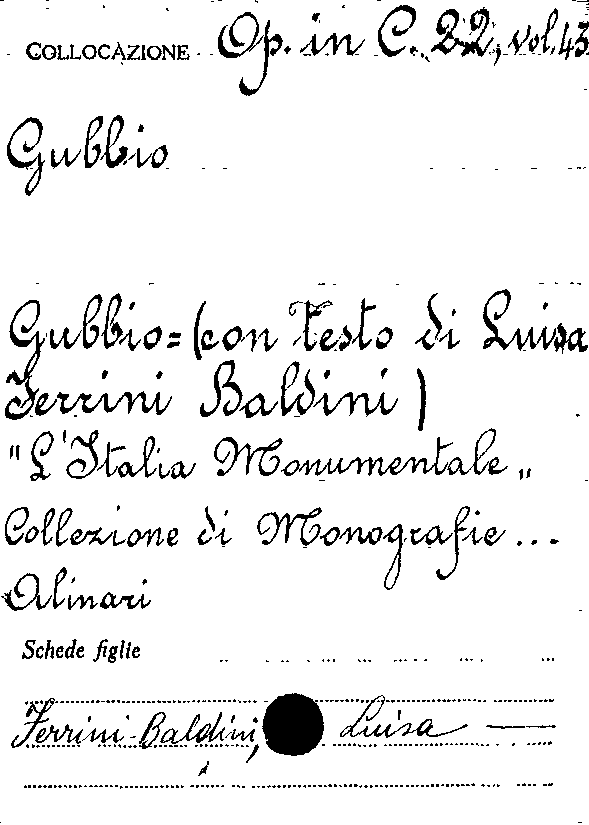 COLLOCAZIONE Op. in C. 22, vol. 43
Gubbio
Gubbio=(con testo di Luisa
Ferrini Baldini)
"L'Italia Monumentale„
Collezione di Monografie...
Alinari
Schede figlie
Ferrini-Baldini, Luisa —